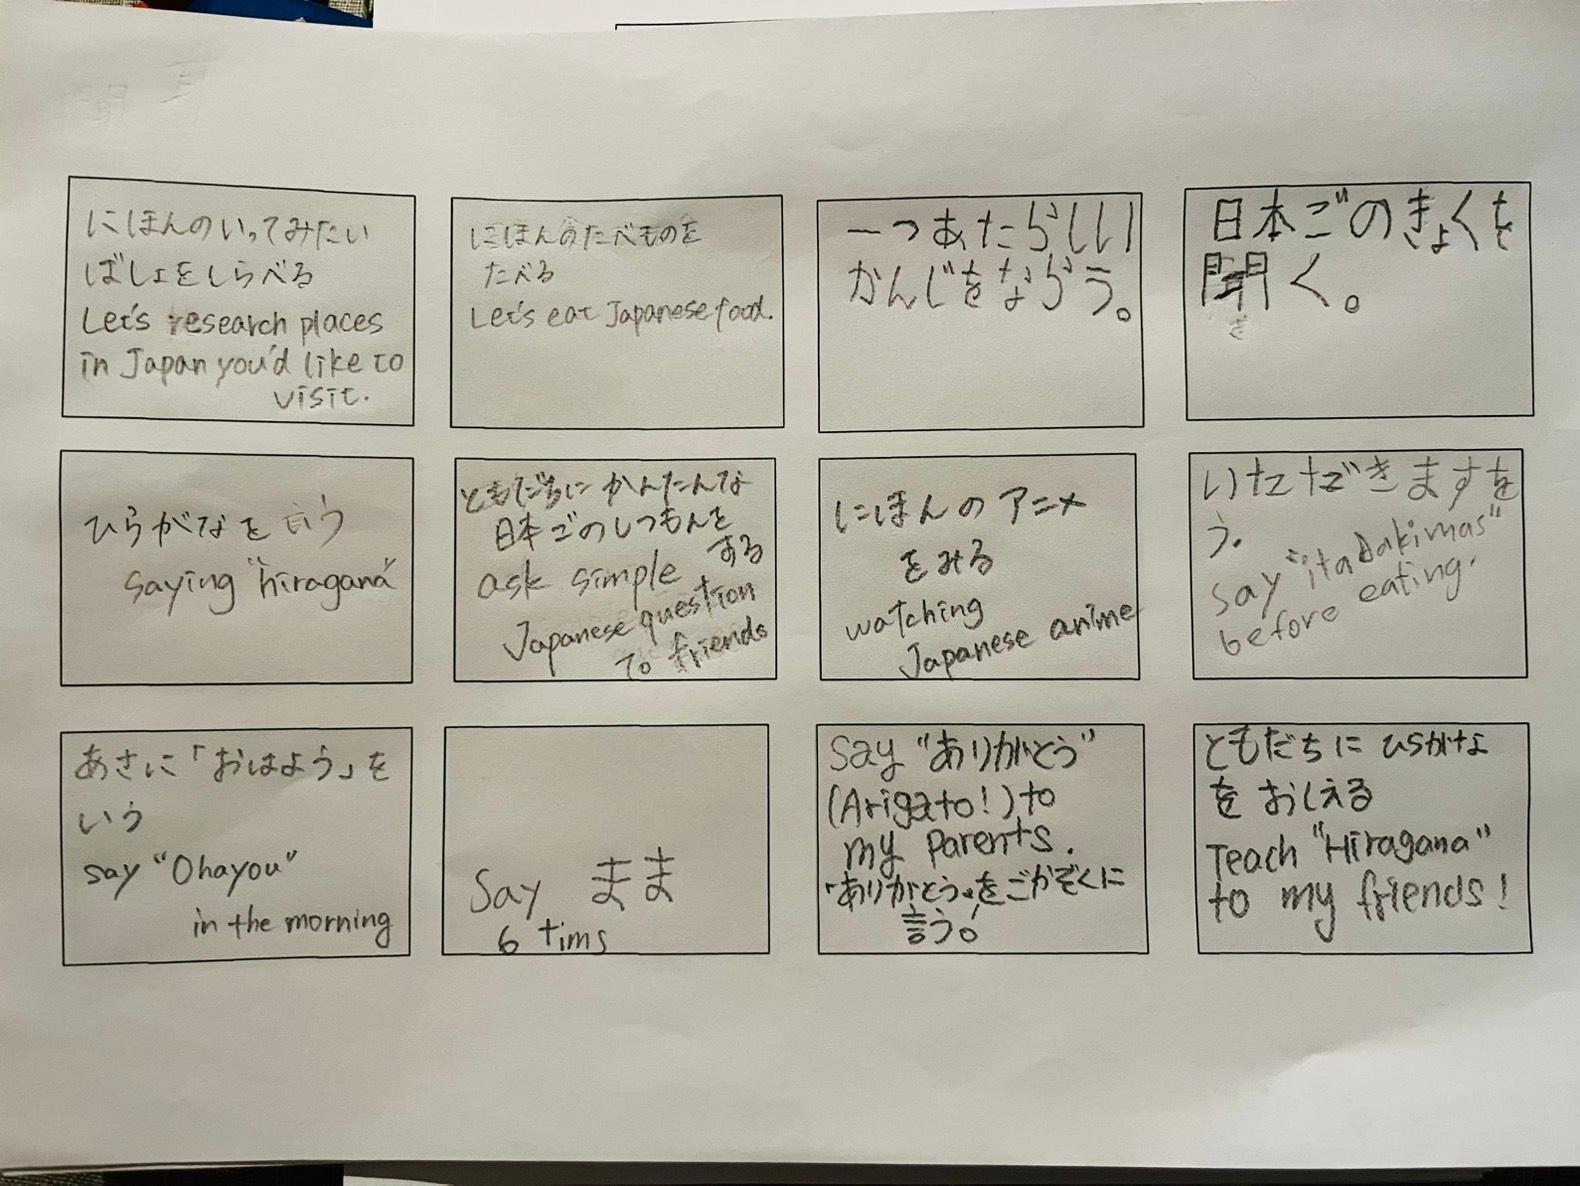 にほんのいってみたい
ばしょをしらべる
Let's research places
in Japan you'd like to
visit.
にほんのたべものを
たべる
Let's eat Japanese food.
一つあたらしい
かんじをならう。
日本ごのきょくを
聞く。
き
ひらがなを言う
saying "hiragana"
ともだちにかんたんな
日本ごのしつもんを
する
ask simple
Japanese question
To friends
にほんのアニメ
をみる
watching
Japanese anime
いただきますを
う。
say "itadakimas"
before eating.
あさに「おはよう」を
いう
say "Ohayou"
in the morning
Say まま
6 tims
Say "ありがとう"
(Arigato!) to
my parents.
「ありがとう」をごかぞくに
言う!
ともだちに ひらがな
を おしえる
Teach "Hiragana"
to my friends!